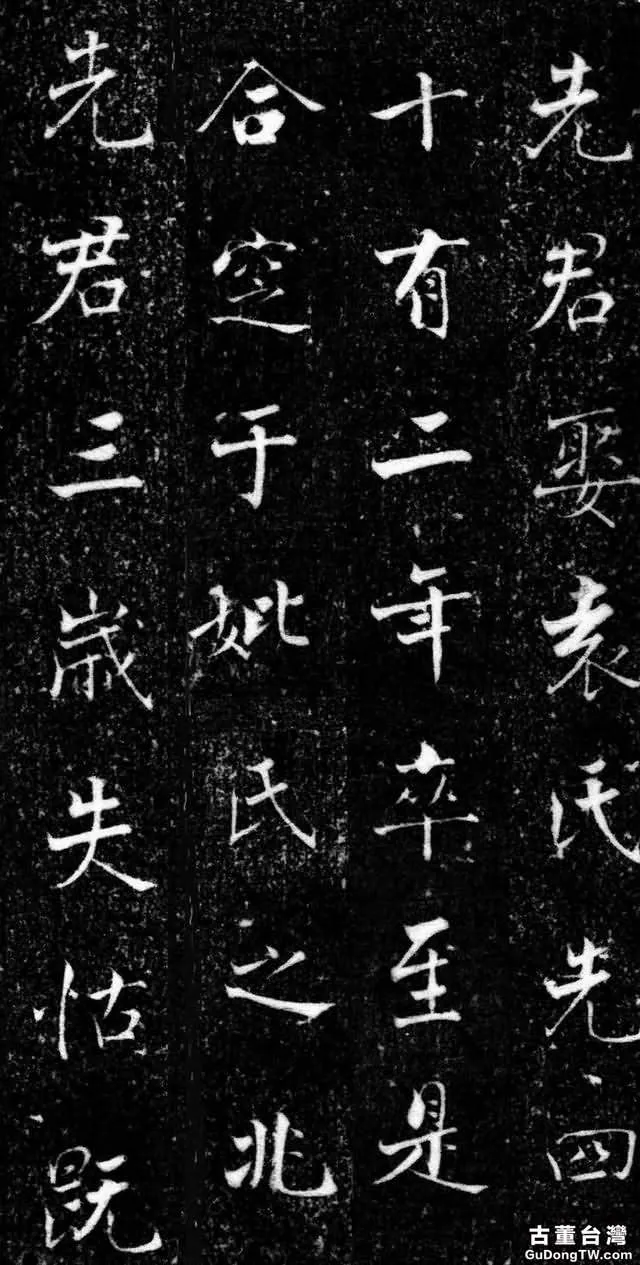 先君娶袁氏先四
十有二年卒至是
合窆于妣氏之兆
先君三歲失怙既
古董台灣
GuDongTW.com